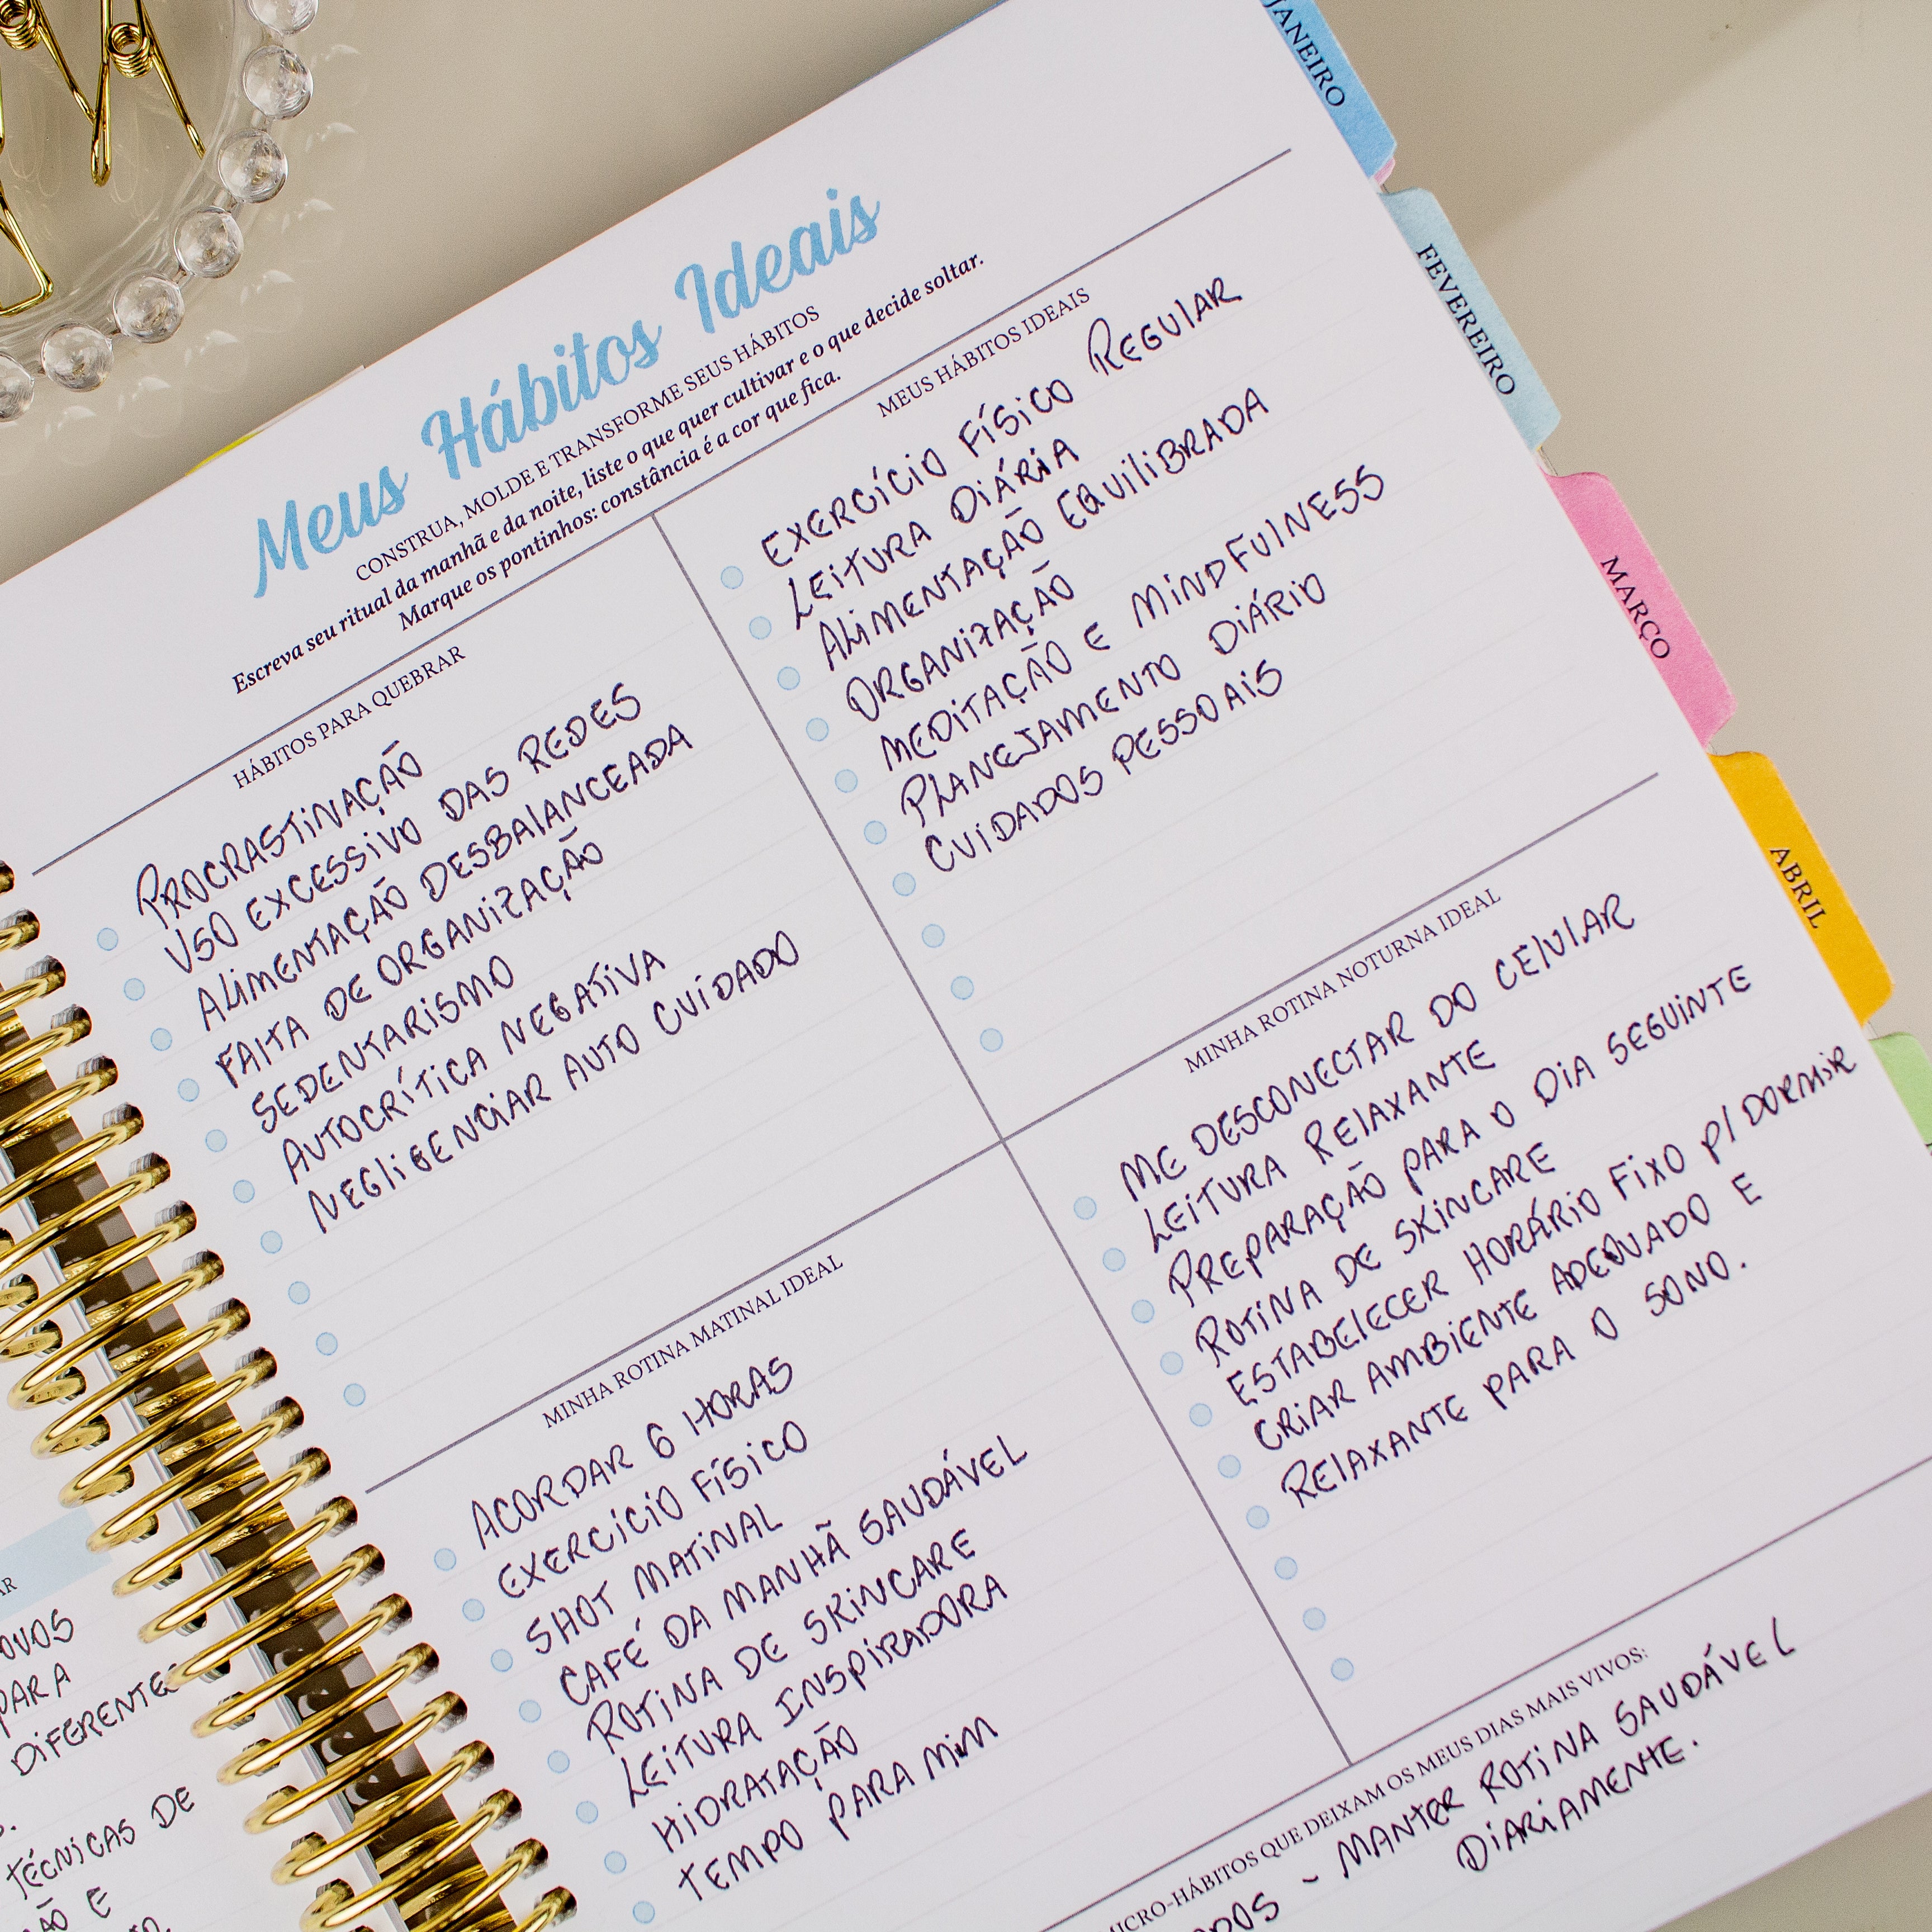 JANEIRO
FEVEREIRO
MARÇO
ABRIL
Meus Hábitos Ideais
CONSTRUA, MOLDE E TRANSFORME SEUS HÁBITOS
Escreva seu ritual da manhã e da noite, liste o que quer cultivar e o que decide soltar.
Marque os pontinhos: constância é a cor que fica.
HÁBITOS PARA QUEBRAR
PROCRASTINAÇÃO
USO EXCESSIVO DAS REDES
ALIMENTAÇÃO DESBALANCEADA
FALTA DE ORGANIZAÇÃO
SEDENTARISMO
AUTOCRÍTICA NEGATIVA
NEGLIGENCIAR AUTO CUIDADO
MEUS HÁBITOS IDEAIS
EXERCÍCIO FÍSICO REGULAR
LEITURA DIÁRIA
ALIMENTAÇÃO EQUILIBRADA
ORGANIZAÇÃO
MEDITAÇÃO E MINDFULNESS
PLANEJAMENTO DIÁRIO
CUIDADOS PESSOAIS
MINHA ROTINA MATINAL IDEAL
ACORDAR 6 HORAS
EXERCÍCIO FÍSICO
SHOT MATINAL
CAFÉ DA MANHÃ SAUDÁVEL
ROTINA DE SKINCARE
LEITURA INSPIRADORA
HIDRATAÇÃO
TEMPO PARA MIM
MINHA ROTINA NOTURNA IDEAL
ME DESCONECTAR DO CELULAR
LEITURA RELAXANTE
PREPARAÇÃO PARA O DIA SEGUINTE
ROTINA DE SKINCARE
ESTABELECER HORÁRIO FIXO P/ DORMIR
CRIAR AMBIENTE ADEQUADO E
RELAXANTE PARA O SONO.
MICRO-HÁBITOS QUE DEIXAM OS MEUS DIAS MAIS VIVOS:
- MANTER ROTINA SAUDÁVEL
DIARIAMENTE.
PARA
DIFERENTES
TÉCNICAS DE
E